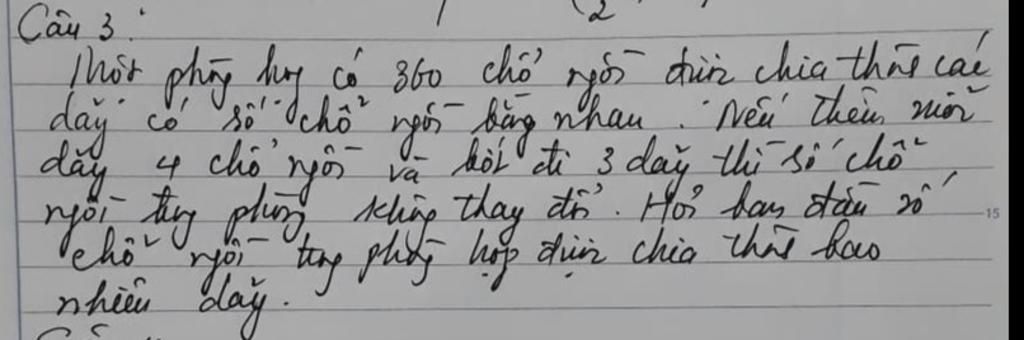 Câu 3:
Một phòng họp có 360 chỗ ngồi được chia thành các
dãy có số chỗ ngồi bằng nhau. Nếu thêm mỗi
dãy 4 chỗ ngồi và bớt đi 3 dãy thì số chỗ
ngồi trong phòng không thay đổi. Hỏi ban đầu số
chỗ ngồi trong phòng họp được chia thành bao
nhiêu dãy.
15